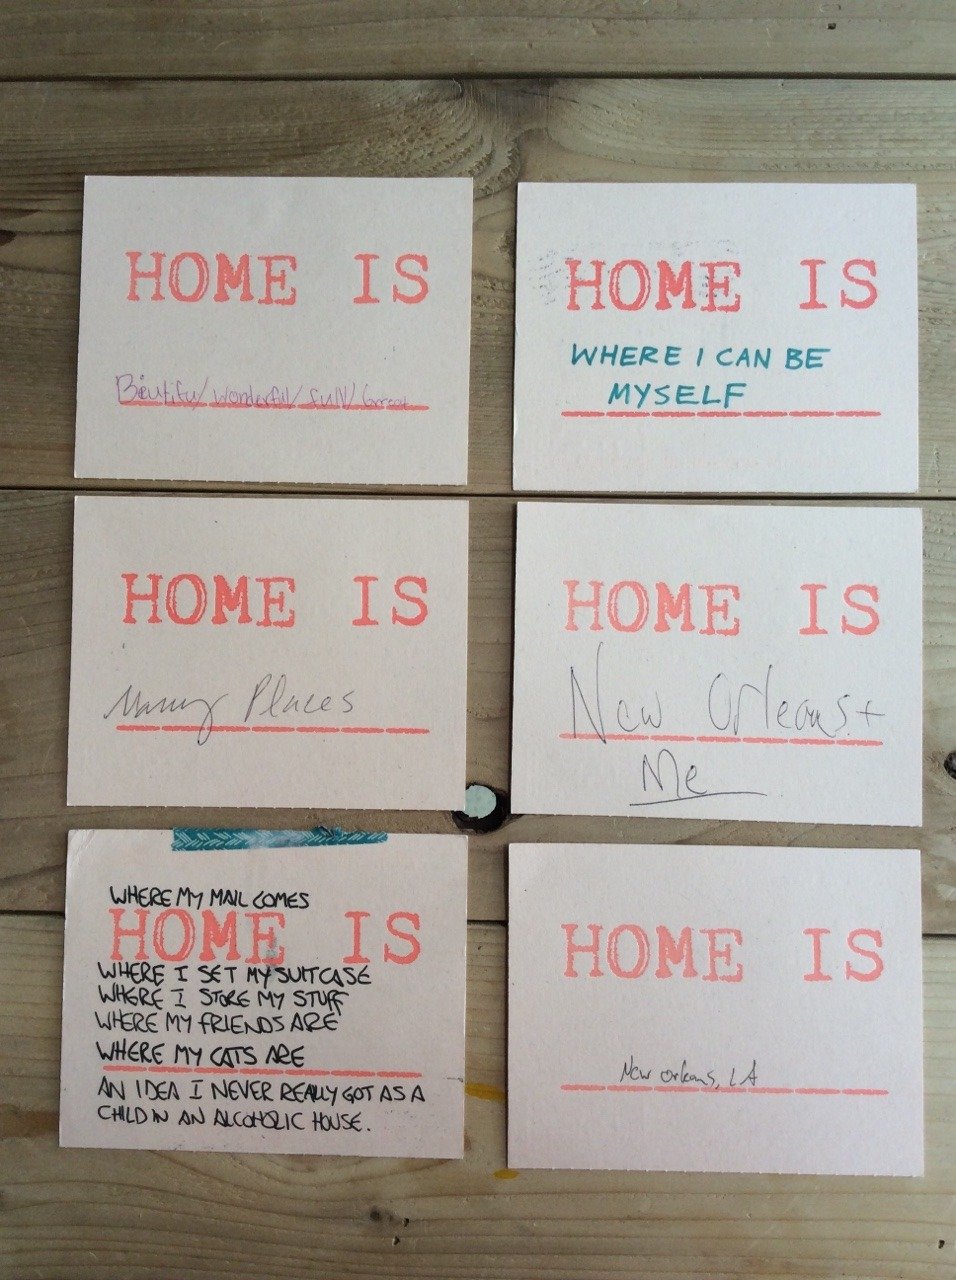 HOME IS
Beiutiful/wonderful/fuN/Grreat
HOME IS
WHERE I CAN BE
MYSELF
HOME IS
Many Places
HOME IS
New Orleans +
Me
WHERE MY MAIL COMES
HOME IS
WHERE I SET MY SUITCASE
WHERE I STORE MY STUFF
WHERE MY FRIENDS ARE
WHERE MY CATS ARE
AN IDEA I NEVER REALLY GOT AS A
CHILD IN AN ALCOHOLIC HOUSE.
HOME IS
New Orleans, LA